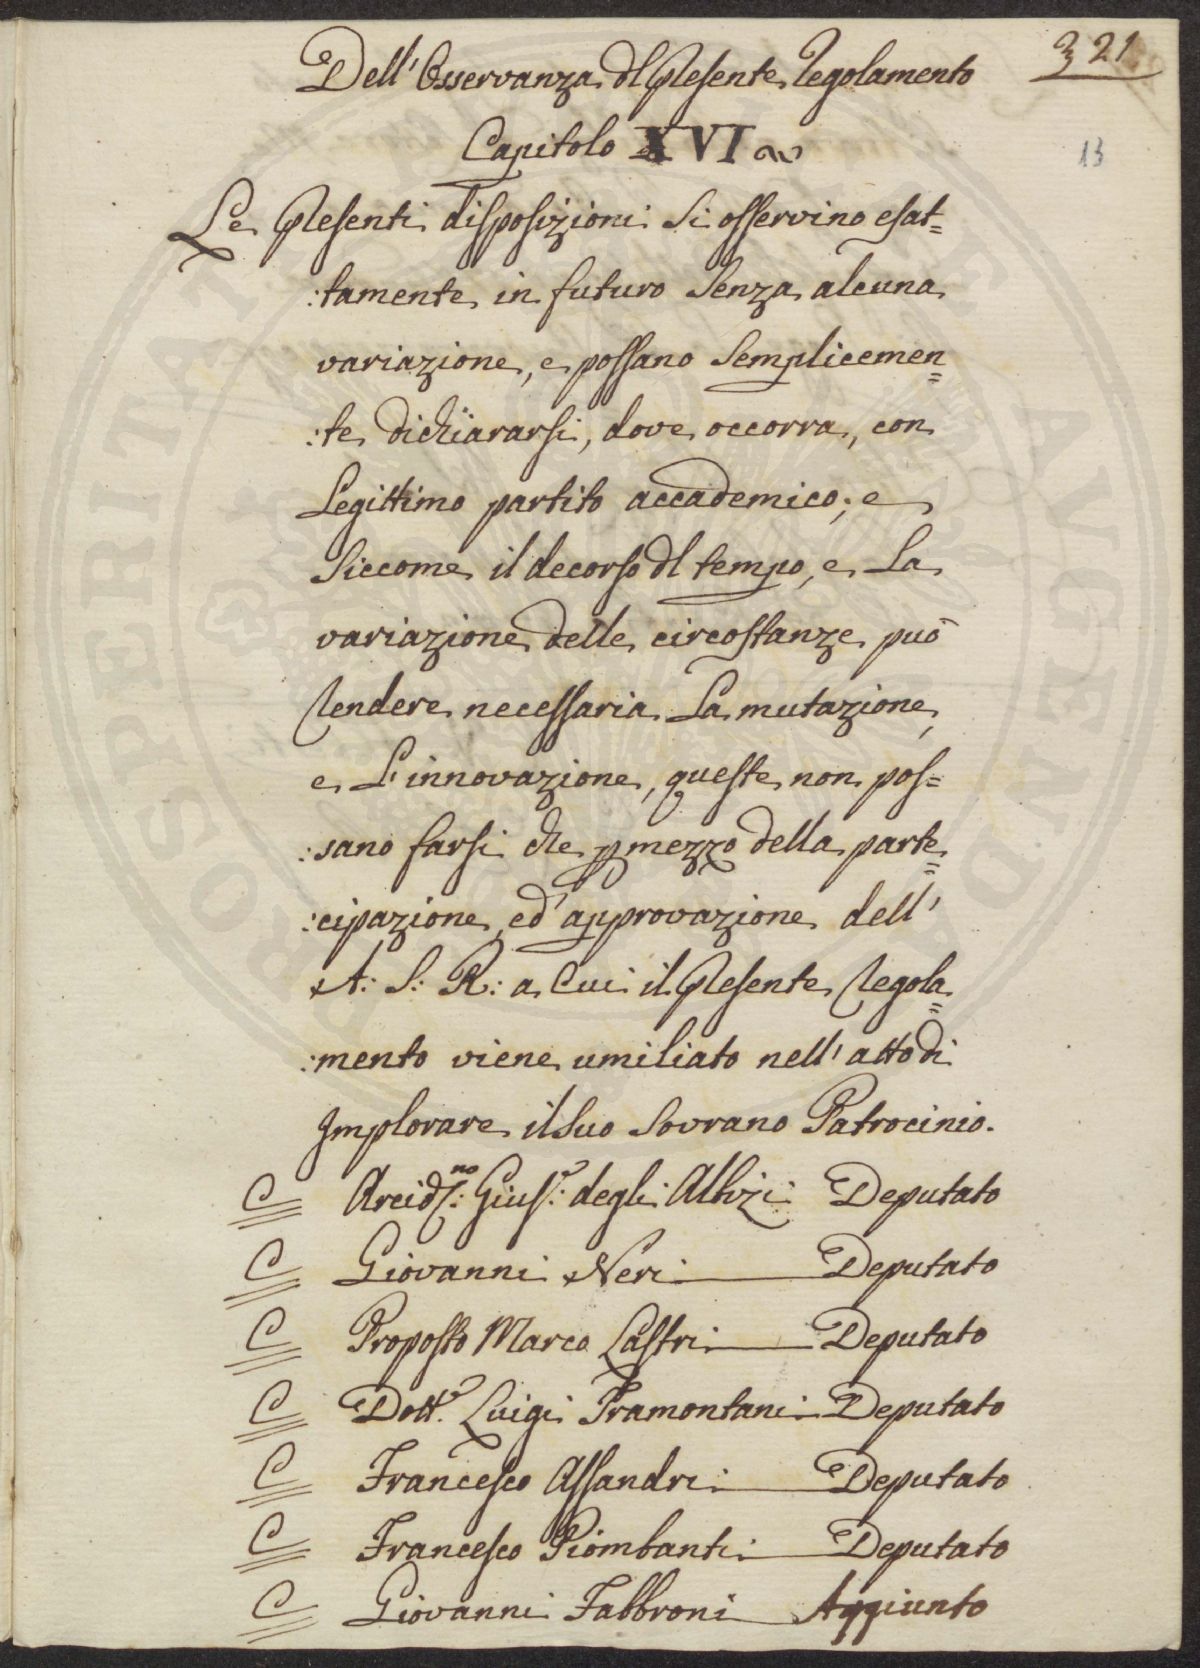 321
Dell' Osservanza dl Presente Regolamento
Capitolo XVI
13
Le Presenti disposizioni si osservino esat=
:tamente in futuro senza alcuna
variazione, e possano semplicemen=
:te dichiararsi, dove occorra, con
Legittimo partito accademico; e
siccome il decorso dl tempo, e La
variazione delle circostanze può
rendere necessaria La mutazione,
e L'innovazione, queste non pos=
:sano farsi che p mezzo della parte=
:cipazione, ed' approvazione dell'
A: S: R: a Cui il Presente Regola=
:mento viene umiliato nell' atto di
Implorare il suo Sovrano Patrocinio.
C Arcid:no Gius:e degli Albizi Deputato
C Giovanni Neri Deputato
C Proposto Marco Lastri Deputato
C Dott.e Luigi Tramontani Deputato
C Francesco Assandri Deputato
C Francesco Piombanti Deputato
C Giovanni Fabbroni Aggiunto
PROSPERITATI PUBLICAE AUGENDAE